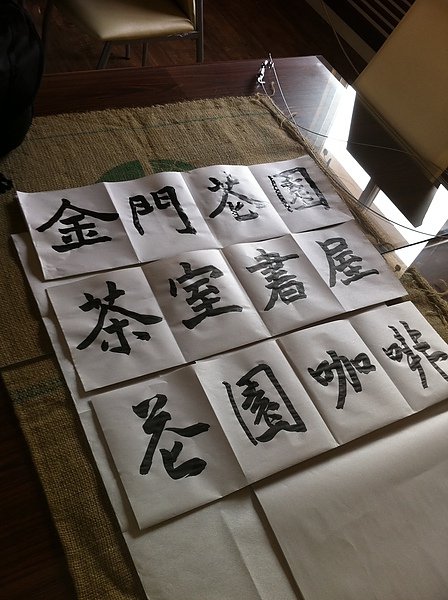 金門苍園
茶室書屋
苍園咖啡